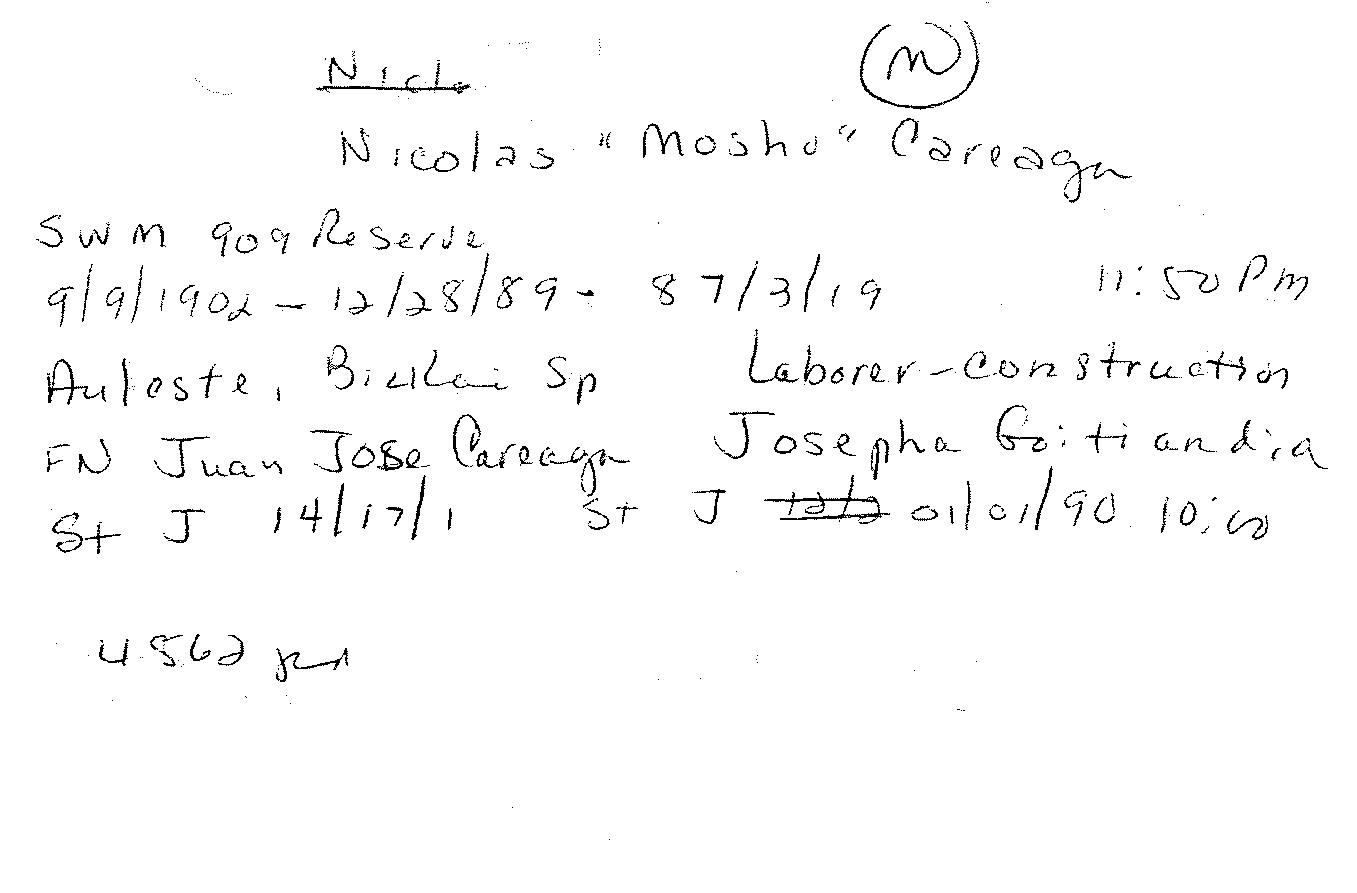 Nicl
M
Nicolas "Mosho" Careaga
SWM 909 Reserve
9/9/1902 - 12/28/89 - 87/3/19 11:50 PM
Auleste, Bizkai Sp Laborer-construction
FN Juan Jose Careaga Josepha Goitiandia
St J 14/17/1 St J 12/2 01/01/90 10:00
4562